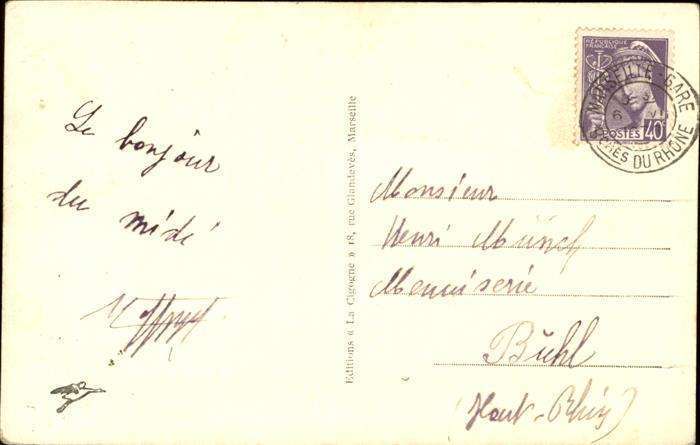 Le bonjour
du midi
Editions « La Cigogne » 18, rue Glandevès, Marseille
RÉPUBLIQUE
FRANÇAISE
POSTES 40
MARSEILLE-GARE
DU RHÔNE
Monsieur
Henri Münch
Menuiserie
Bühl
(Haut-Rhin)